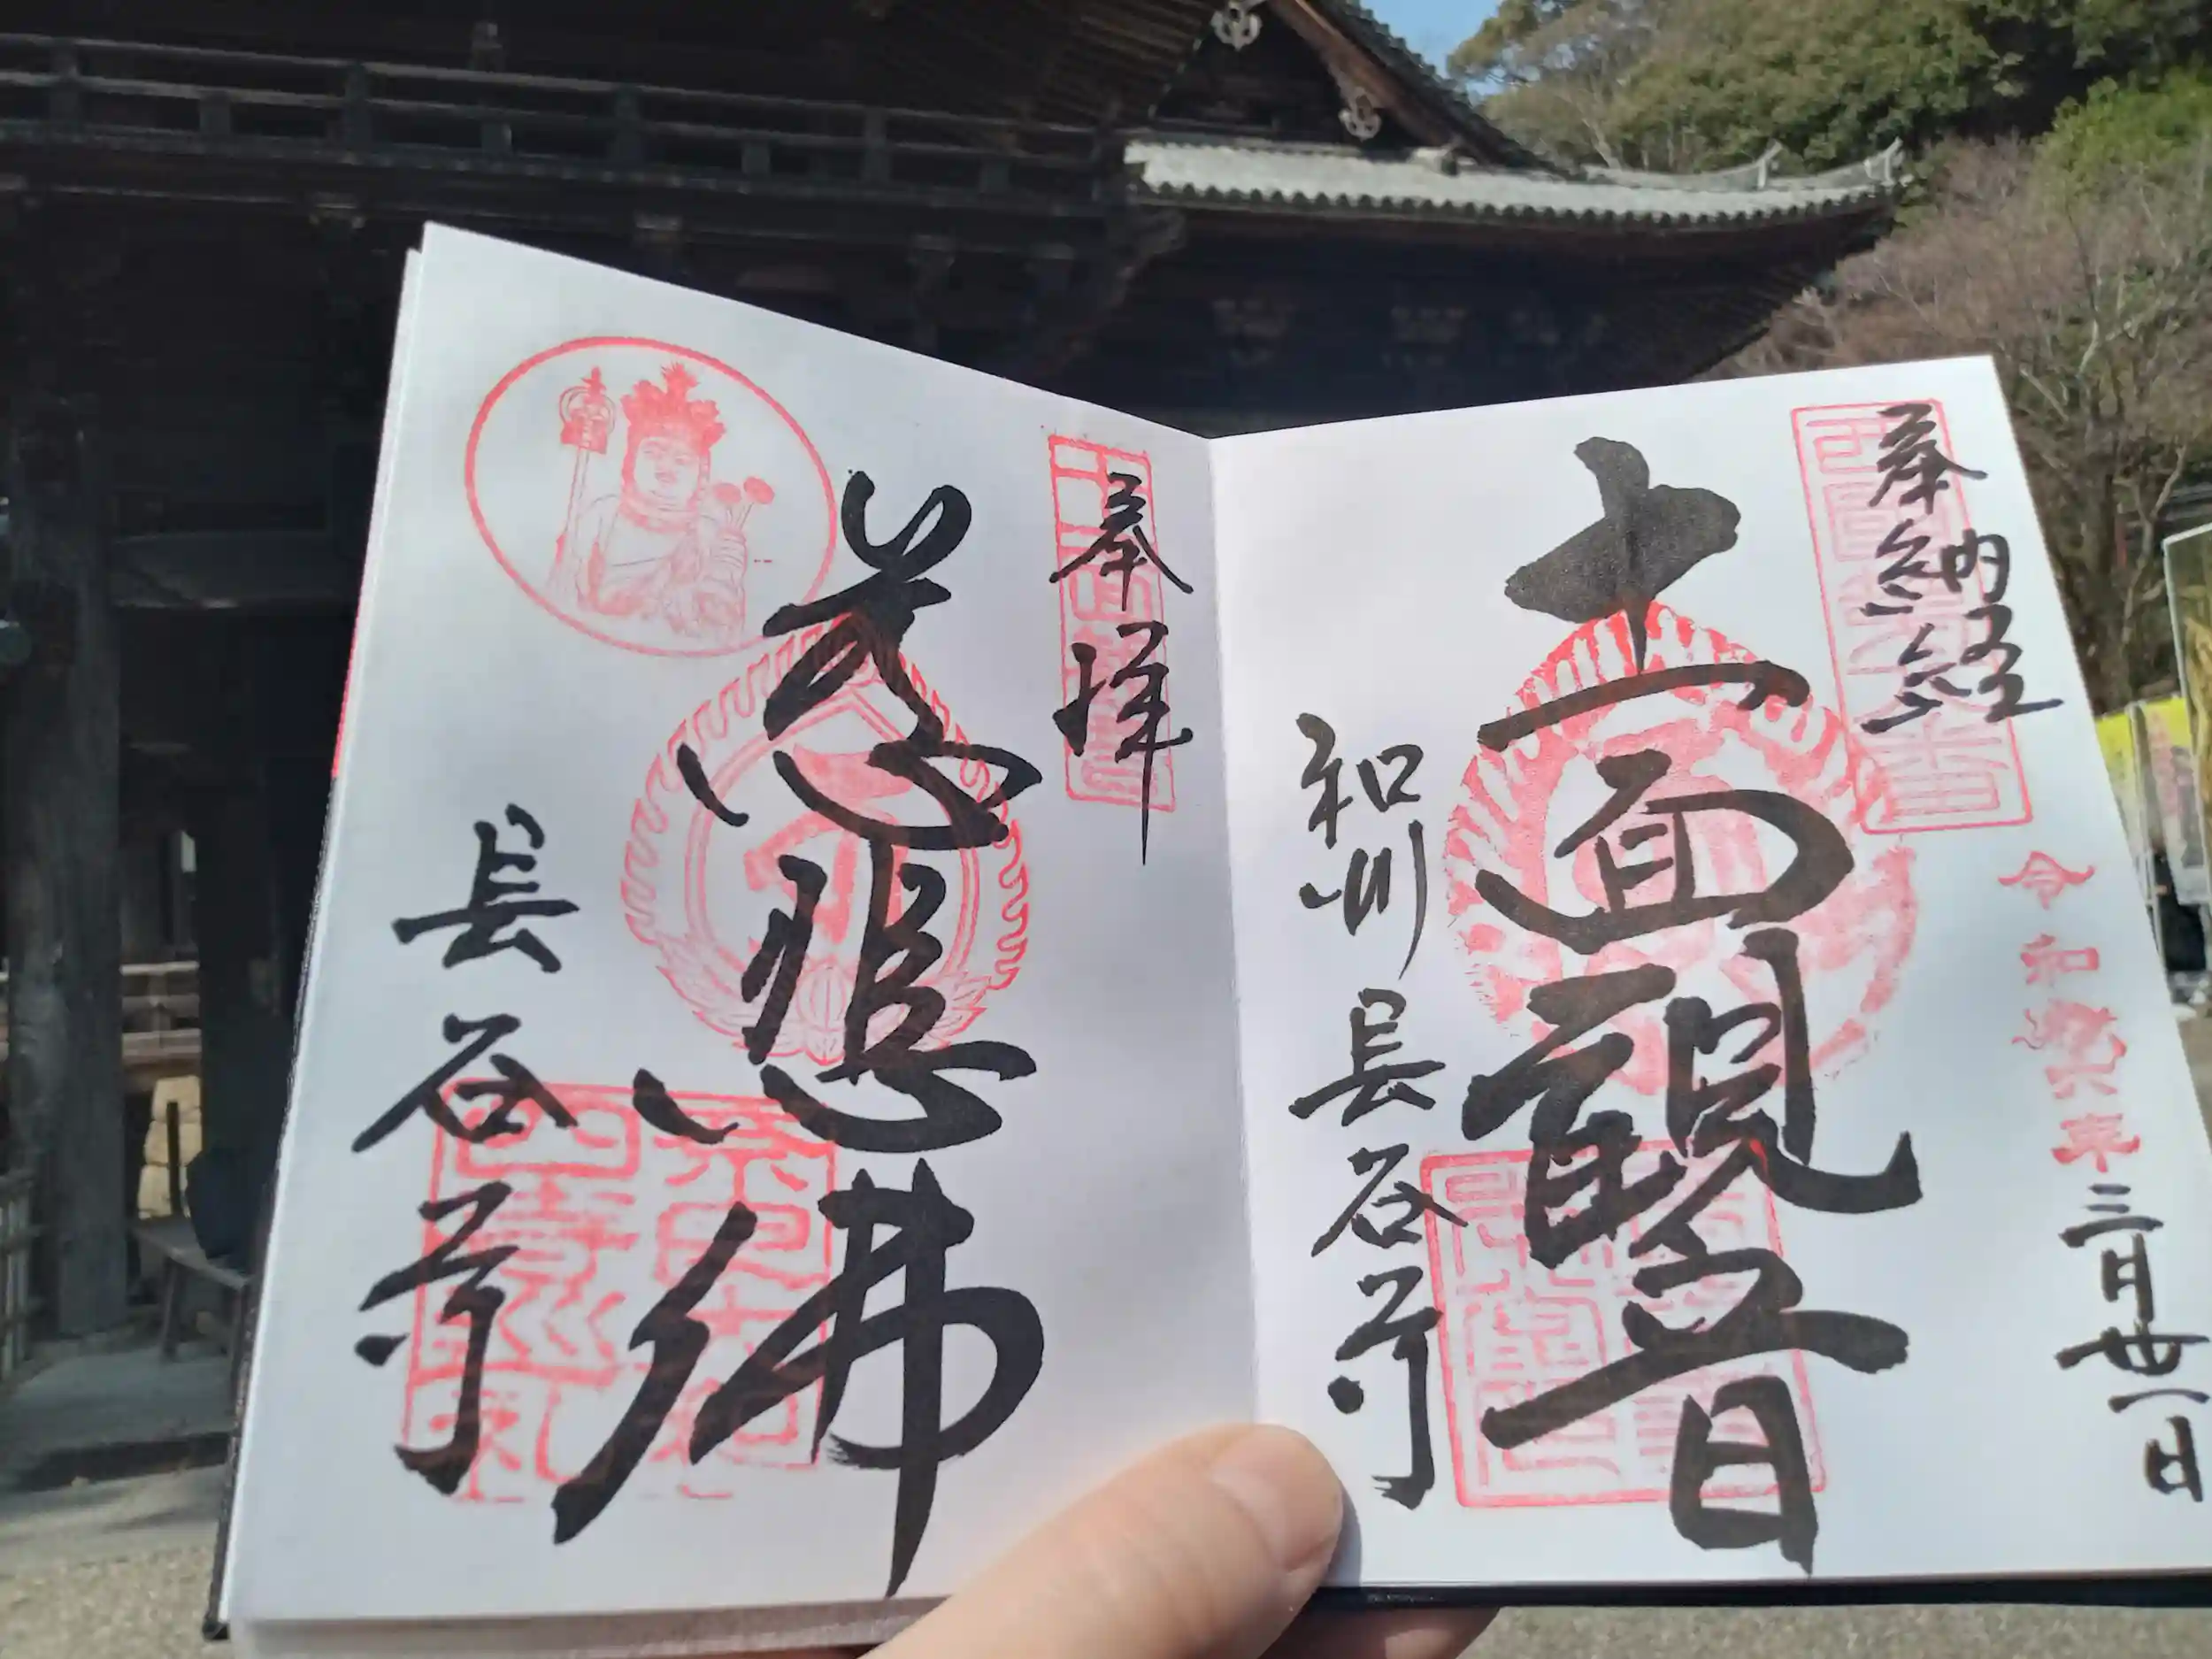 奉納経
令和六年三月廿一日
十一面観音
和州 長谷寺
奉拝
慈悲佛
長谷寺